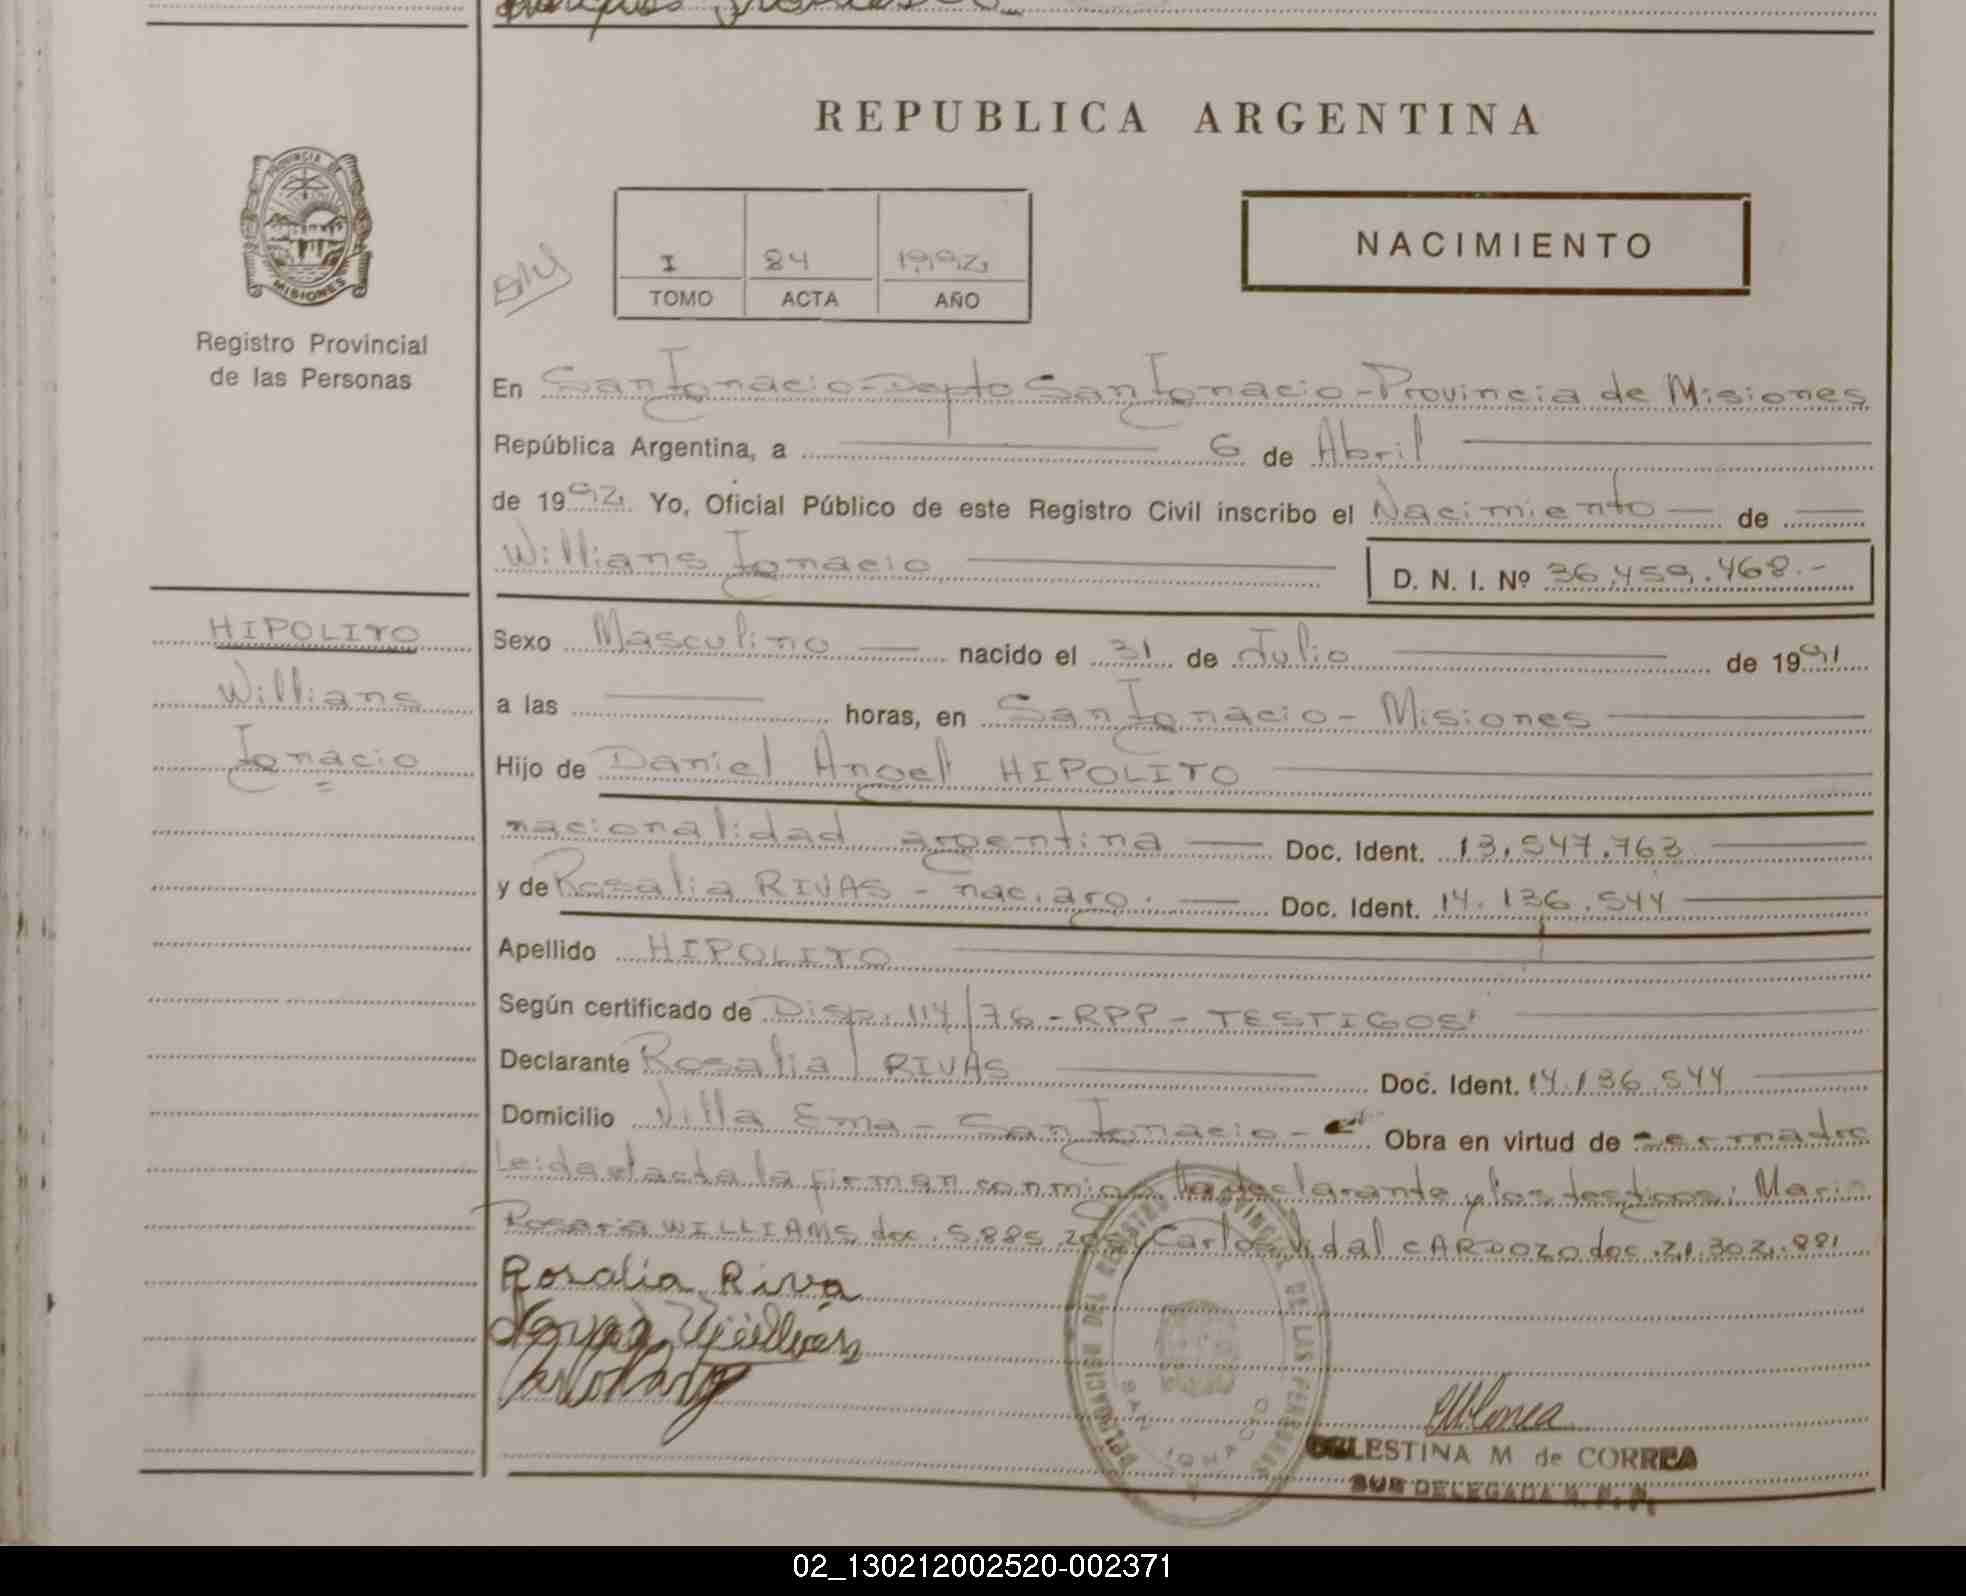 REPUBLICA ARGENTINA
PROVINCIA DE
MISIONES
Registro Provincial
de las Personas
I 84 1992
TOMO ACTA AÑO
NACIMIENTO
En San Ignacio - Depto San Ignacio - Provincia de Misiones
República Argentina, a 6 de Abril
de 1992 Yo, Oficial Público de este Registro Civil inscribo el Nacimiento de
Willians Ignacio D. N. I. Nº 36.459.468.-
HIPOLITO
Willians
Ignacio
Sexo Masculino nacido el 31 de Julio de 1991
a las horas, en San Ignacio - Misiones
Hijo de Daniel Angel HIPOLITO
nacionalidad argentina Doc. Ident. 13.547.763
y de Rosalia RIVAS - nac. arg. Doc. Ident. 14.136.544
Apellido HIPOLITO
Según certificado de Disp. 114/76 - RPP - TESTIGOS
Declarante Rosalia RIVAS Doc. Ident. 14.136.544
Domicilio Villa Ema - San Ignacio - Obra en virtud de ser madre
Leida el acta la firman conmigo la declarante y los testigos: Maria
Rosaria WILLIAMS doc. 5.885.20 Carlos Vidal CARDOZO doc. 21.302.881
Rosalia Riva
DELEGACION DEL REGISTRO PROVINCIAL DE LAS PERSONAS
SAN IGNACIO
CELESTINA M de CORREA
SUB DELEGADA R. P. P.
02_130212002520-002371